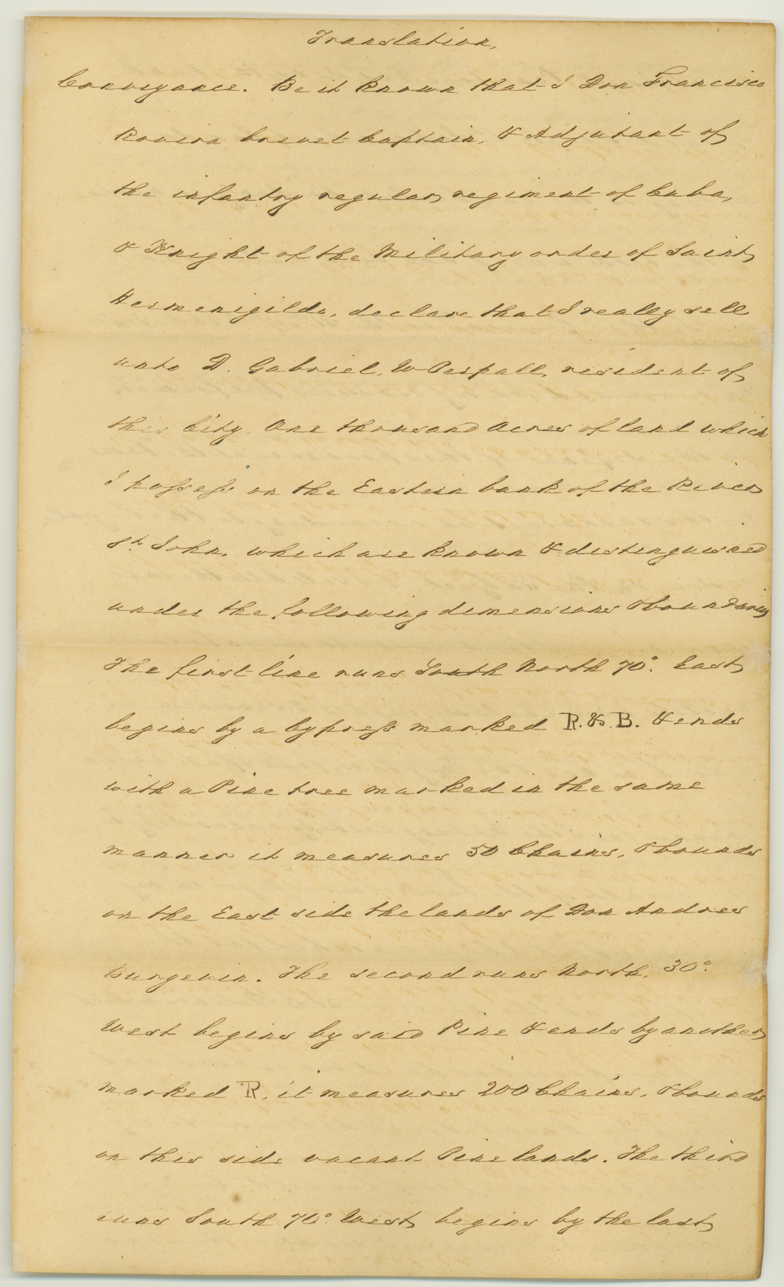 Translation.
Conveyance. Be it known that I Don Francisco
Rovira brevet Captain, & Adjutant of
the infantry regular regiment of Cuba,
& Knight of the Military order of Saint
Hermenigildo, declare that I really sell
unto D. Gabriel, W Perpall, resident of
this City. One thousand Acres of land which
I possess on the Eastern bank of the River
St. John, which are known & distinguished
under the following dimensions & boundaries
The first line runs South North 70°. East,
begins by a Cypress marked R. & B. & ends
with a Pine tree marked in the same
manner it measures 50 Chains, & bounds
on the East side the lands of Don Andres
Burgevin. The second runs North, 30°.
West begins by said Pine & ends by another,
marked R, it measures 200 Chains, & bounds
on this side vacant Pine lands. The third
runs South 70° West, begins by the last,